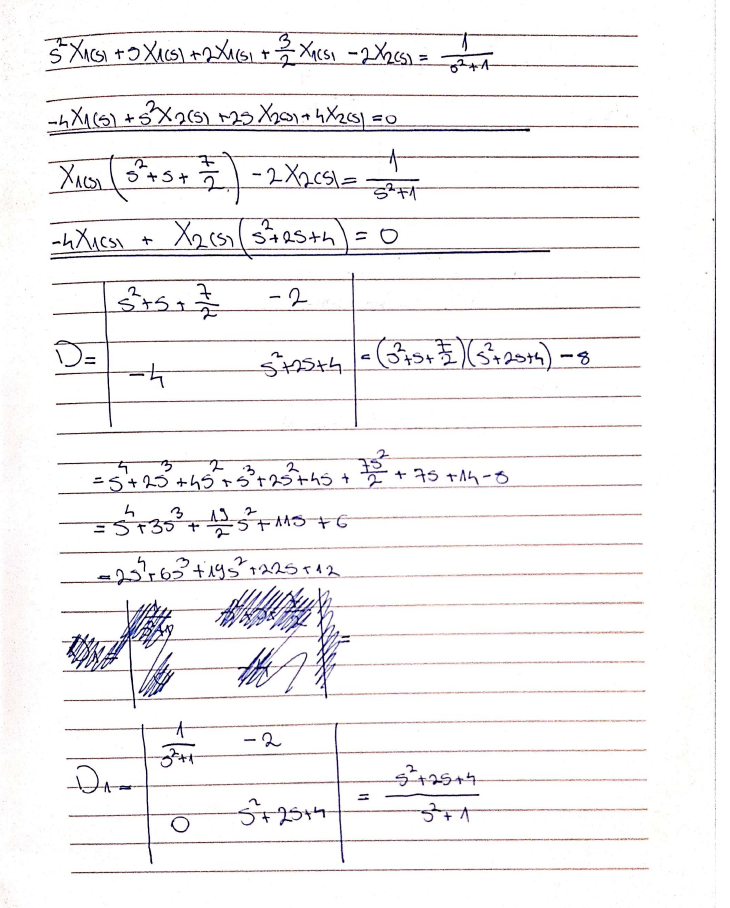 s²X₁(s) + sX₁(s) + 2X₁(s) + 3/2 X₁(s) - 2X₂(s) = 1/(s²+1)
-4X₁(s) + s²X₂(s) + 2sX₂(s) + 4X₂(s) = 0
X₁(s) (s²+s+7/2) - 2X₂(s) = 1/(s²+1)
-4X₁(s) + X₂(s) (s²+2s+4) = 0
D = | s²+s+7/2 -2 |
| -4 s²+2s+4 | = (s²+s+7/2)(s²+2s+4) - 8
= s⁴+2s³+4s²+s³+2s²+4s + 7s²/2 + 7s + 14 - 8
= s⁴+3s³+19/2 s²+11s+6
= 2s⁴+6s³+19s²+22s+12
=
D₁ = | 1/(s²+1) -2 |
| 0 s²+2s+4 | = (s²+2s+4)/(s²+1)